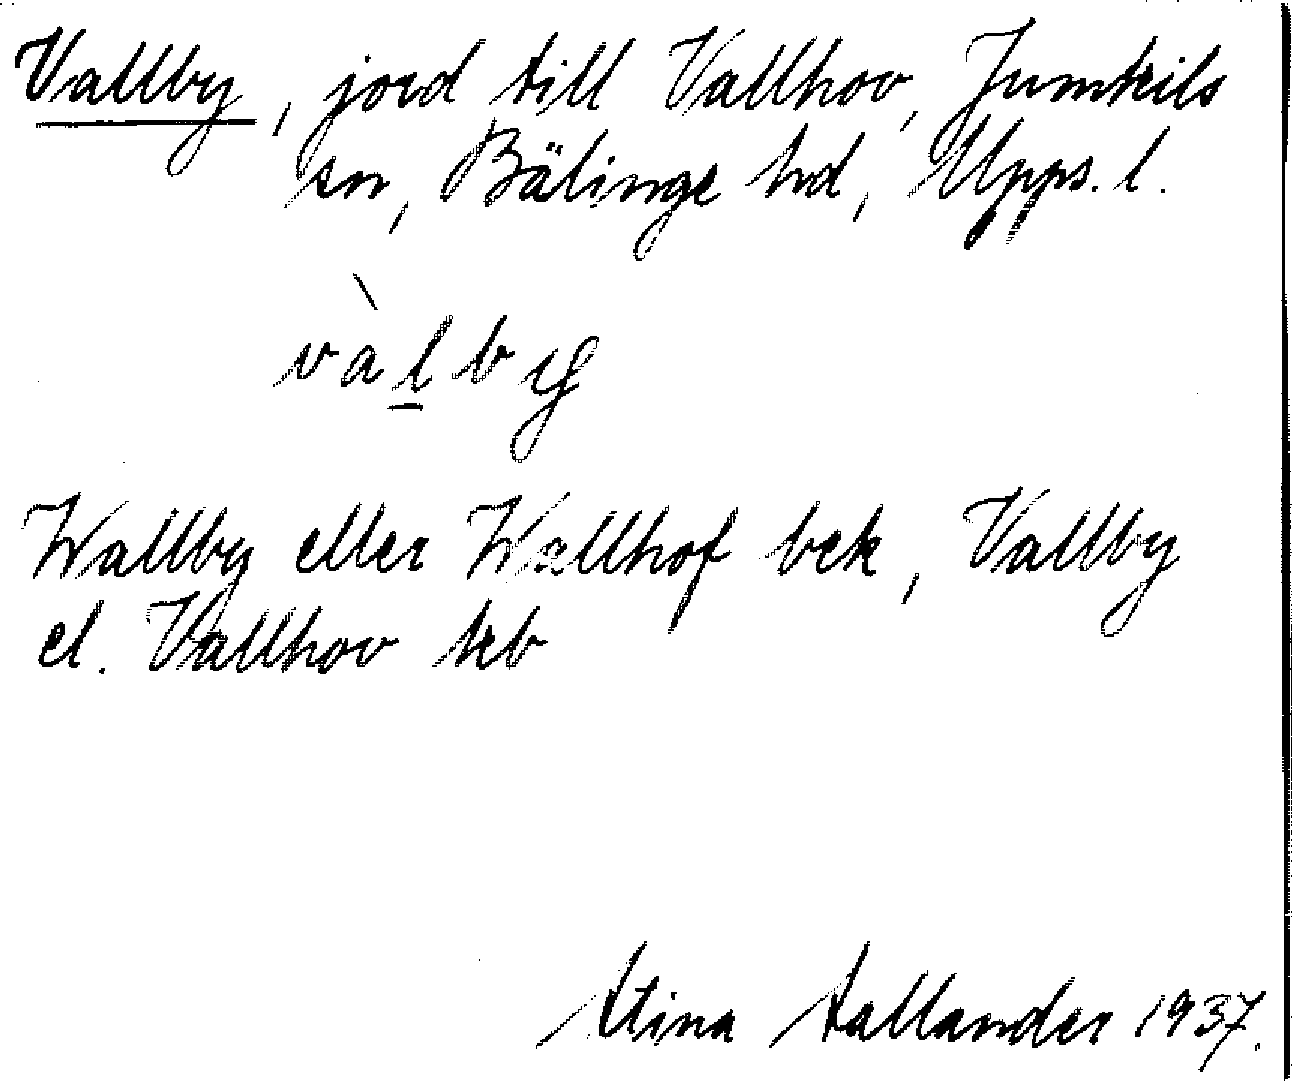 Vallby, jord till Vallhov, Jumkils
sn, Bälinge hd, Upps. l.
vàlby
Wallby eller Wallhof bek, Vallby
el. Vallhov jeb
Stina Sallander 1937.